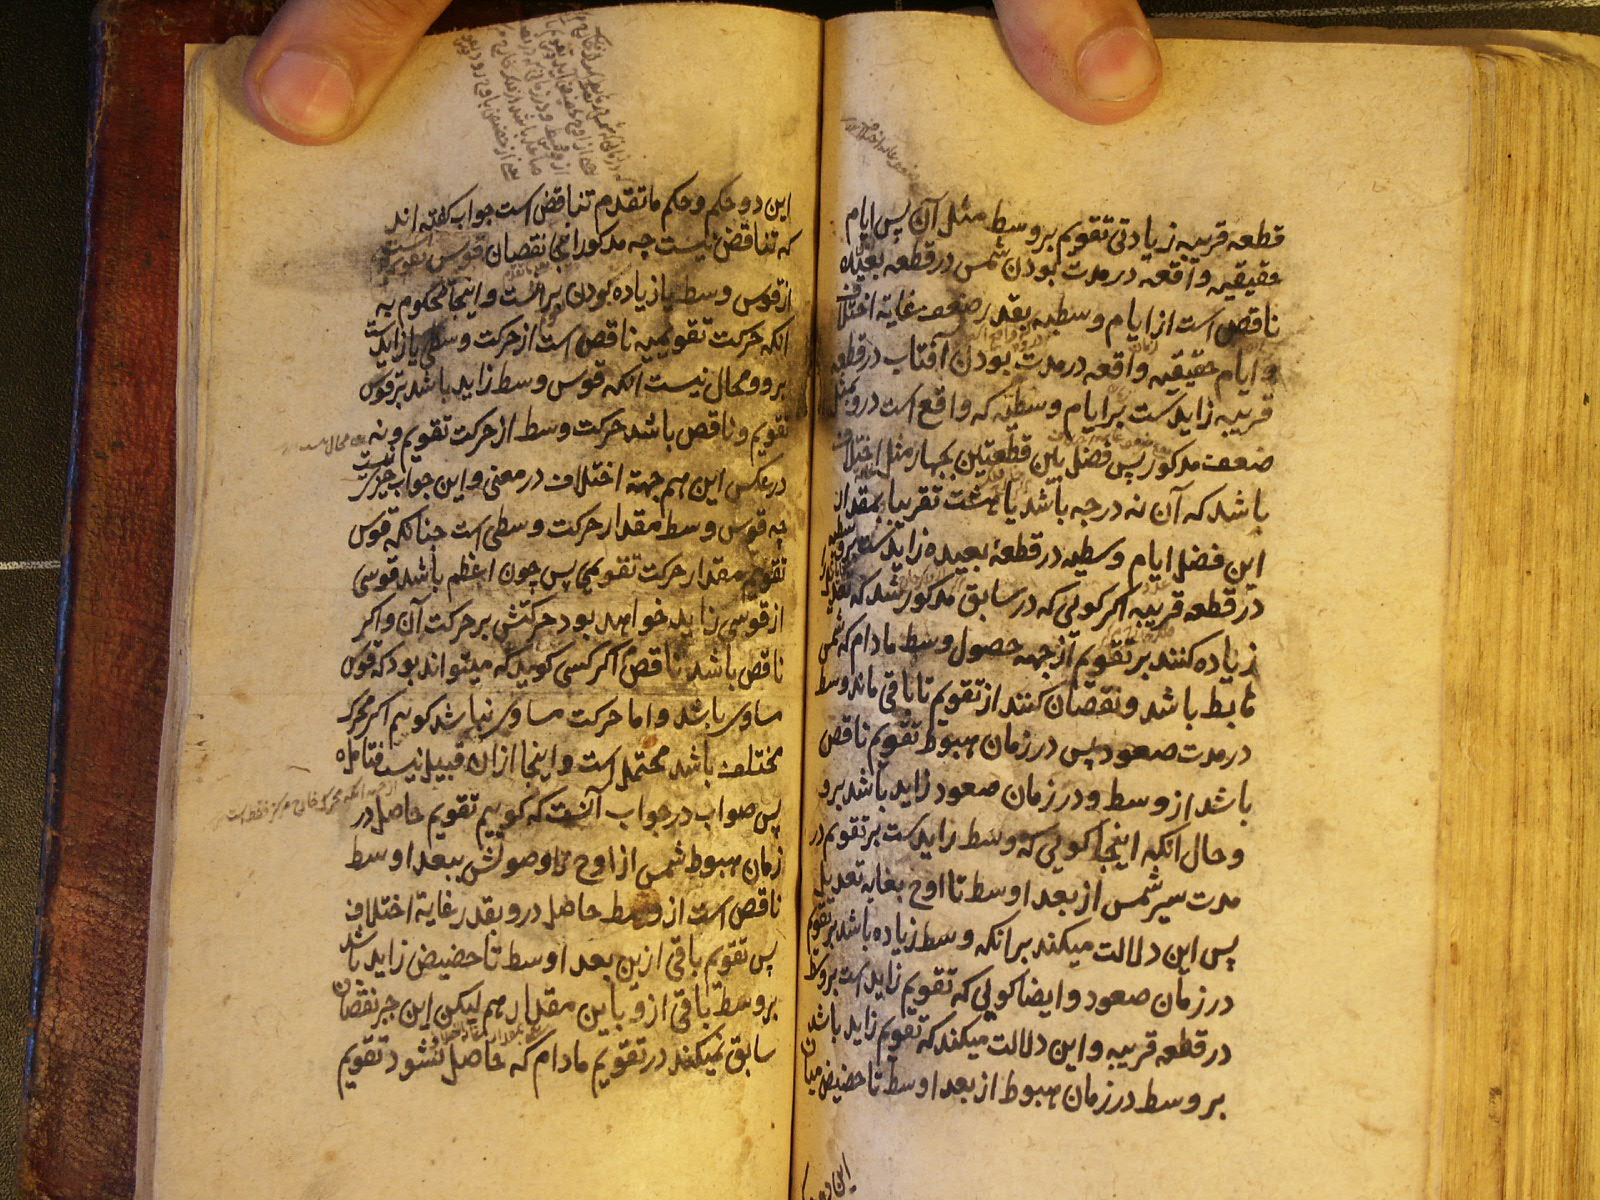 قطعه قریبه زیادتی تقویم بر وسط مثل آن پس ایام
حقیقیه واقعه در مدت بودن شمس در قطعه بعیده
ناقص است از ایام وسطیه بقدر ضعف غایة اختلاف
و ایام حقیقیه واقعه در مدت بودن آفتاب در قطعه
قریبه زایدست بر ایام وسطیه که واقع است درو بمثل
ضعف مذکور پس فضل بین قطعتین بچهار مثل اختلاف
باشد که آن نه درجه باشد یا هشت تقریبا بمقدار
این فضل ایام وسطیه در قطعهٔ بعیده زایدست بر
در قطعه قریبه اکر کوئی که در سابق مذکور شد که تعدیل
زیاده کنند بر تقویم از جهه حصول وسط مادام که شمس
هابط باشد و نقصان کنند از تقویم تا باقی ماند وسط
در مدت صعود پس در زمان هبوط تقویم ناقص
باشد از وسط و در زمان صعود زاید باشد برو
و حال انکه اینجا کوئی که وسط زایدست بر تقویم در
مدت سیر شمس از بعد اوسط تا اوج بغایه تعدیل
پس این دلالت میکند بر انکه وسط زیاده باشد بر تقویم
در زمان صعود و ایضا کوئی که تقویم زاید است بر وسط
در قطعه قریبه و این دلالت میکند که تقویم زاید باشد
بر وسط در زمان هبوط از بعد اوسط تا حضیض میان
این دو
این دو حکم و حکم ما تقدم تناقض است جواب کفته اند
که تناقض نیست چه مذکور انجا نقصان قوس تقویم است
از قوس وسط یا زیاده بودن بر آنست و اینجا محکوم به
انکه حرکت تقویمیه ناقص است از حرکت وسطی یا زایدست
برو و محال نیست انکه قوس وسط زاید باشد بر قوس
تقویم و ناقص باشد حرکت وسط از حرکت تقویم و نه
در عکس این هم جهة اختلاف در معنی و این جواب چیزی نیست
چه قوس وسط مقدار حرکت وسطی است چنانکه قوس
تقویم مقدار حرکت تقویمی پس چون اعظم باشد قوسی
از قوسی زاید خواهد بود حرکتش بر حرکت آن و اکر
ناقص باشد ناقص اکر کسی کوید که میتواند بود که قوس
مساوی باشد و اما حرکت مساوی نباشد کویم اکر محرک
مختلف باشد محتمل است و اینجا ازان قبیل نیست فتامله
پس صواب در جواب آنست که کوییم تقویم حاصل در
زمان هبوط شمس از اوج تا وصولش ببعد اوسط
ناقص است از وسط حاصل درو بقدر غایة اختلاف
پس تقویم باقی ازین بعد اوسط تا حضیض زاید باشد
بر وسط باقی ازو باین مقدار هم لیکن این جبر نقصان
سابق نمیکند در تقویم مادام که حاصل نشود تقویم